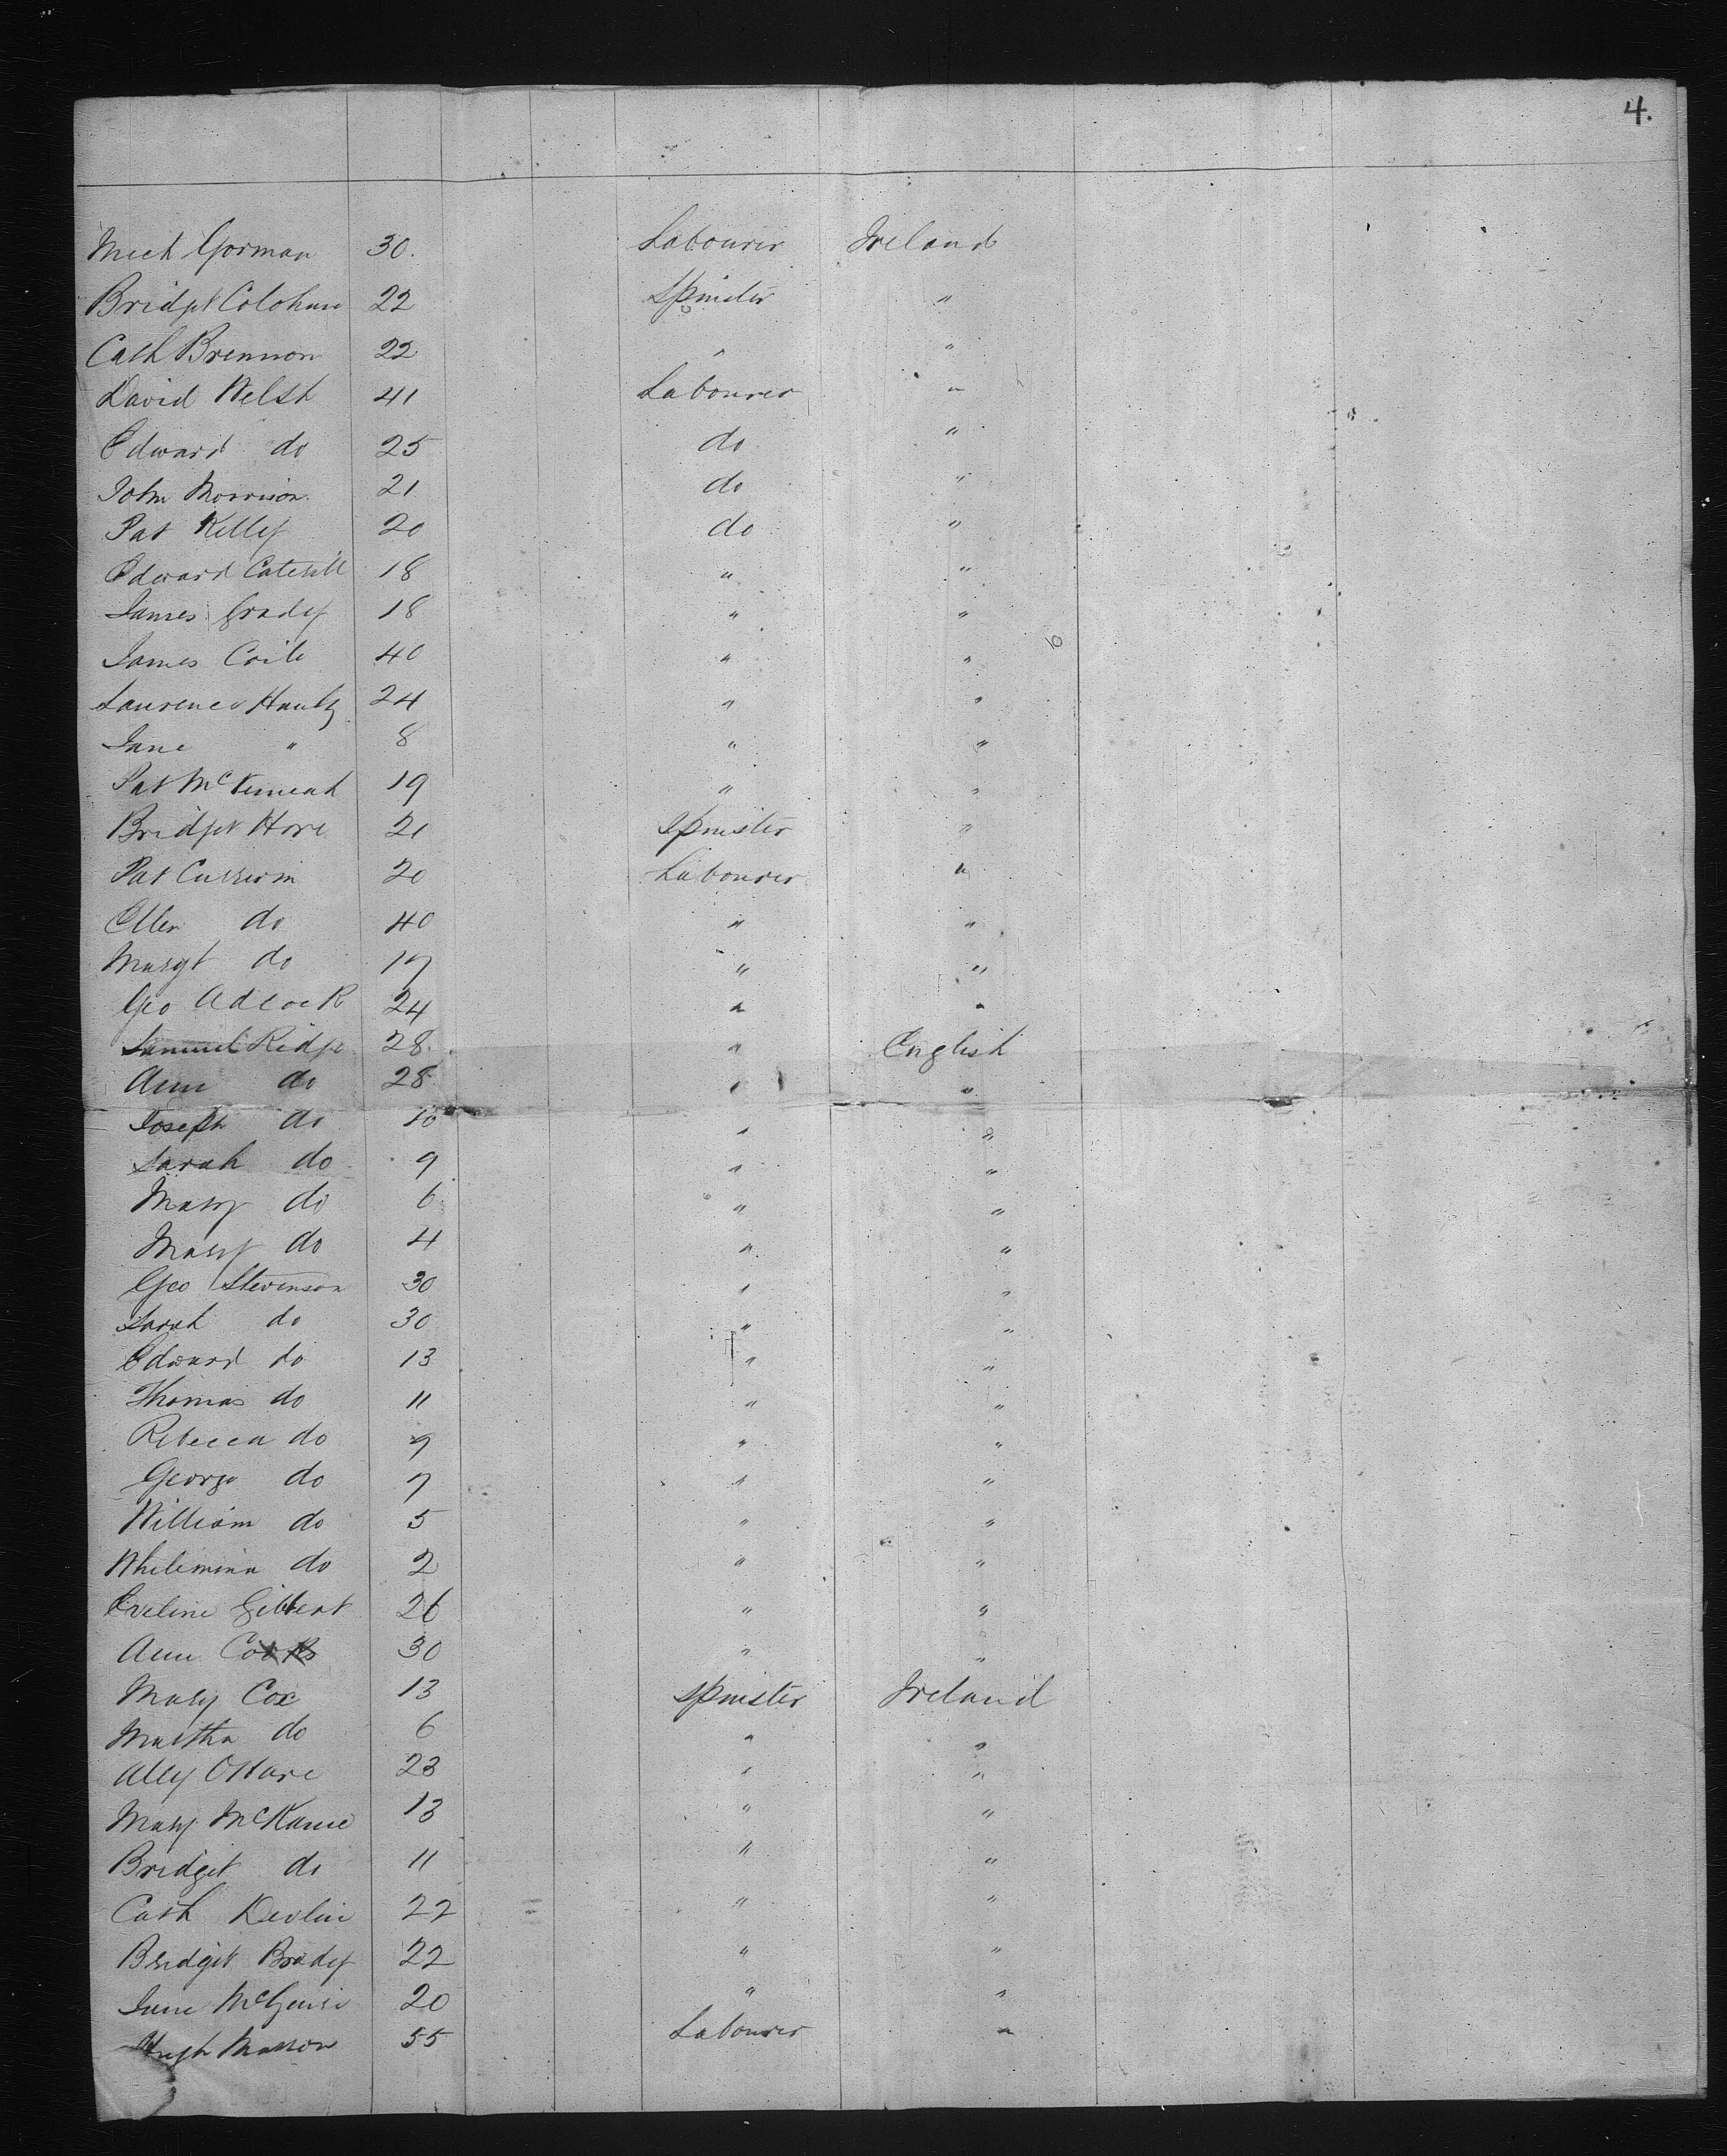 4.
Mich Gorman 30. Labourer Ireland
Bridget Colohan 22 Spinster "
Cath Brennon 22 " "
David Welsh 41 Labourer "
Edward do 25 do "
John Morrison 21 do "
Pat Kelly 20 do "
Edward 18 " "
James Grady 18 " "
James Coile 40 " "
Laurence Haulty 24 " "
Jane " 8 " "
Pat 19 " "
Bridget Hore 21 Spinster "
Pat 20 Labourer "
Ellen do 40 " "
Margt do 17 " "
Geo Adcock 24 " "
Samuel Ridge 28 " English
Ann do 28 " "
Joseph do 10 " "
Sarah do 9 " "
Mary do 6 " "
Mary do 4 " "
Geo Stevenson 30 " "
Sarah do 30 " "
Edward do 13 " "
Thomas do 11 " "
Rebecca do 9 " "
George do 7 " "
William do 5 " "
Whilemina do 2 " "
Eveline Gilbert 26 " "
Ann 30 " "
Mary Cox 13 Spinster Ireland
Martha do 6 " "
Ally OHare 23 " "
Mary McKame 13 " "
Bridget do 11 " "
Cath Devlin 22 " "
Bridget Brady 22 " "
Jane McGuire 20 " "
Hugh Masson 55 Labourer "